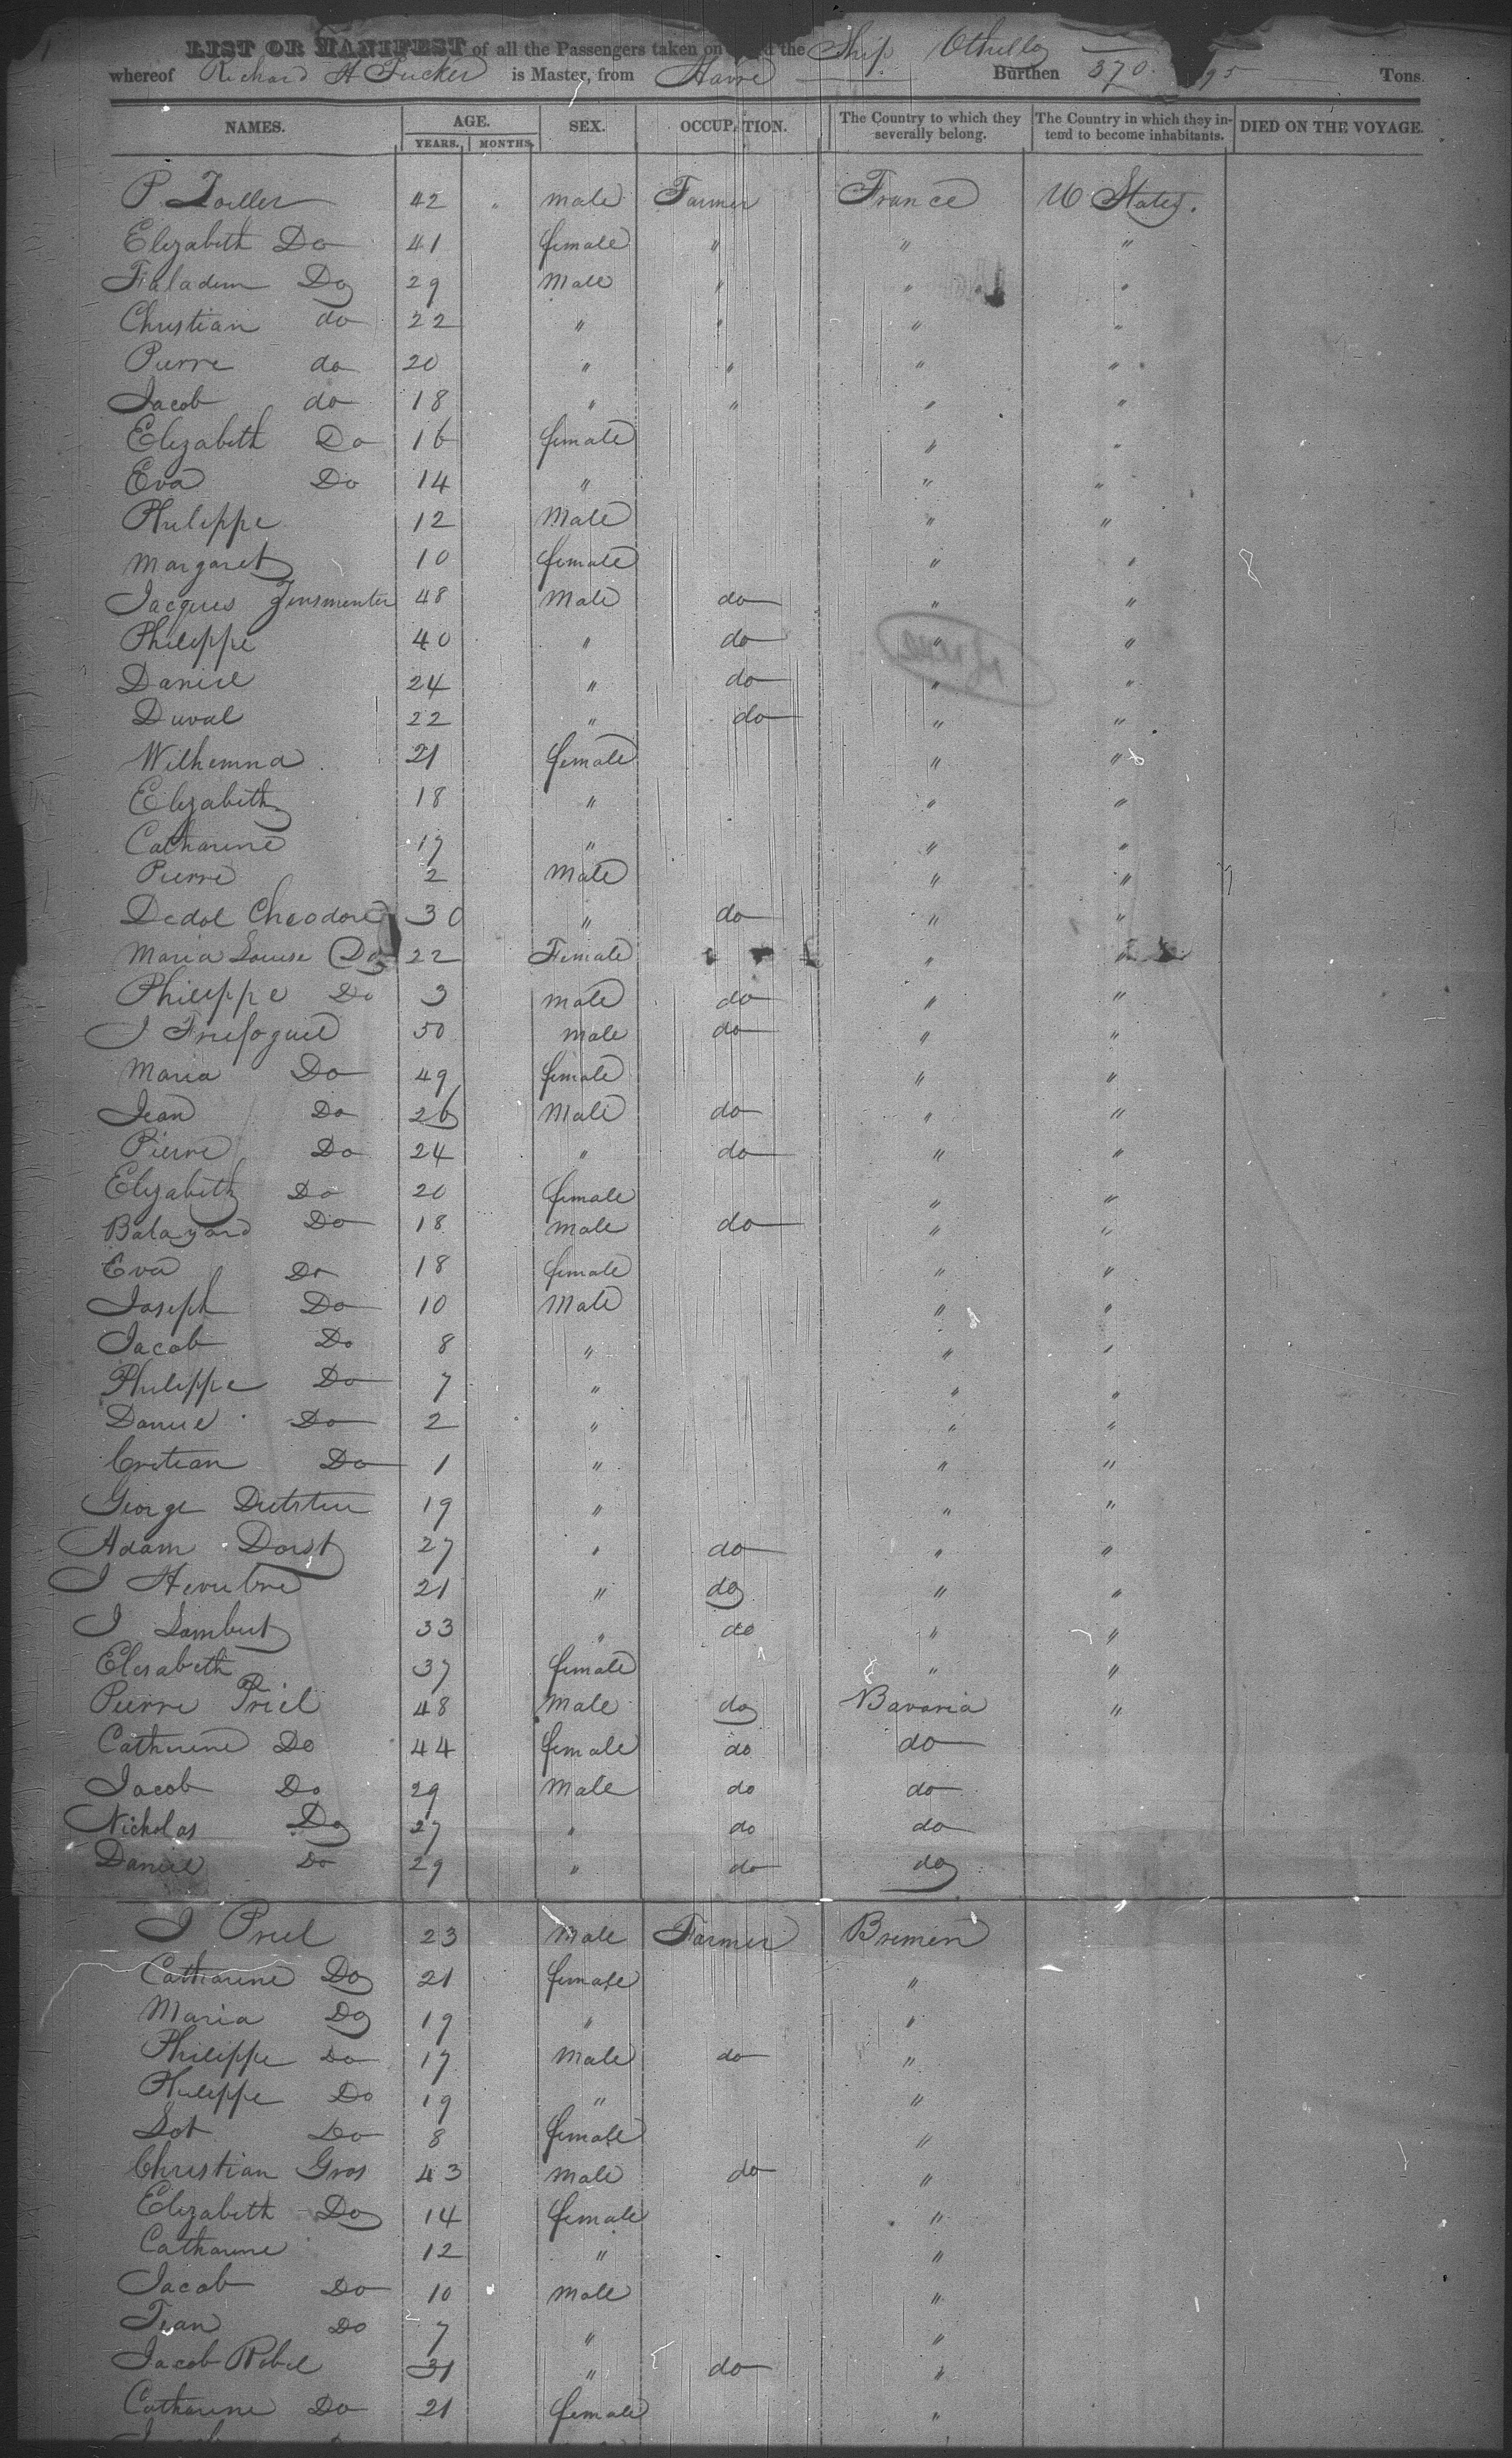 LIST OR MANIFEST of all the Passengers taken on the Ship Othello
whereof Richard H Tucker is Master, from Havre Burthen 370 95 Tons.
NAMES. AGE. SEX. OCCUPATION. The Country to which they severally belong. The Country in which they intend to become inhabitants. DIED ON THE VOYAGE.
YEARS. MONTHS.
P Zoeller 42 " male Farmer France U States.
Elizabeth Do 41 female " " "
Do 29 Male " " "
Christian do 22 " " " "
Pierre do 20 " " " "
Jacob do 18 " " " "
Elizabeth Do 16 female " "
Eva Do 14 " " "
Philippe 12 Male " "
Margaret 10 female " "
Jacques 48 Male do " "
Philippe 40 " do " "
Daniel 24 " do " "
Duval 22 " do " "
Wilhemna 21 female " "
Elizabeth 18 " " "
Catharine 17 " " "
Pierre 2 Male " "
Dedol Theodore 30 " do " "
Maria Louise Do 22 Female " "
Philippe Do 3 male do " "
J 50 male do " "
Maria Do 49 female " "
Jean Do 26 Male do " "
Pierre Do 24 " do " "
Elizabeth Do 20 female " "
Do 18 male do " "
Eva Do 18 female " "
Joseph Do 10 Male " "
Jacob Do 8 " " "
Philippe Do 7 " " "
Daniel Do 2 " " "
Cretian Do 1 " " "
George 19 " " "
Adam Dorst 27 " do " "
J 21 " do " "
J Lambert 33 " do " "
Elesabeth 37 female " "
Pierre Priel 48 Male do Bavaria "
Catherine Do 44 female do do
Jacob Do 29 Male do do
Nicholas Do 27 " do do
Daniel Do 29 " do do
J Priel 23 Male Farmer Bremen
Catharine Do 21 female "
Maria Do 19 " "
Philippe Do 17 Male do "
Philippe Do 19 " "
Do 8 female "
Christian Gros 43 male do "
Elizabeth Do 14 female "
Catharine 12 " "
Jacob Do 10 male "
Jean Do 7 " "
Jacob Rebel 31 " do "
Catharine Do 21 female "